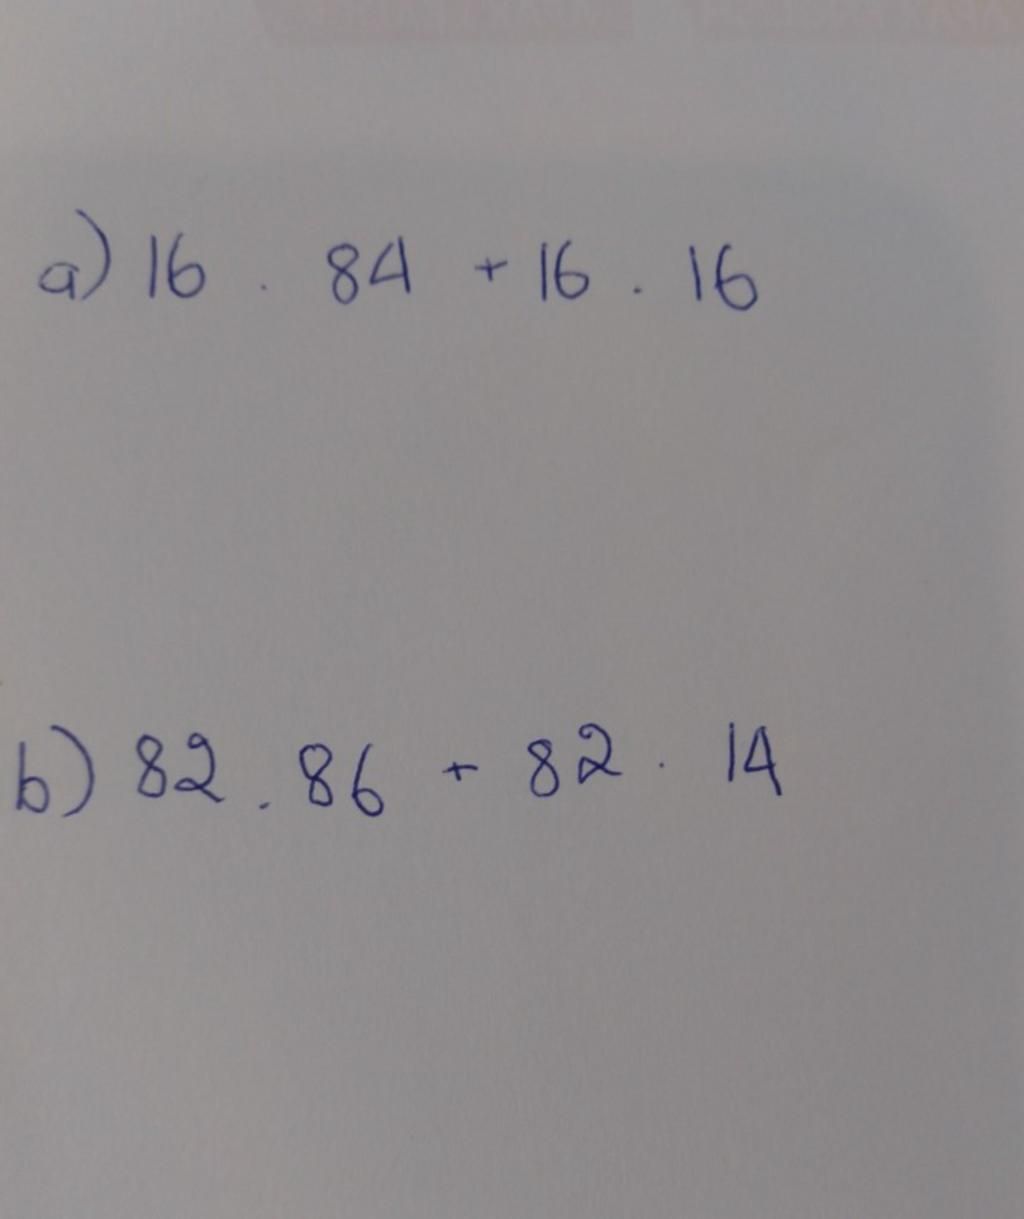 a) 16 . 84 + 16 . 16
b) 82 . 86 + 82 . 14